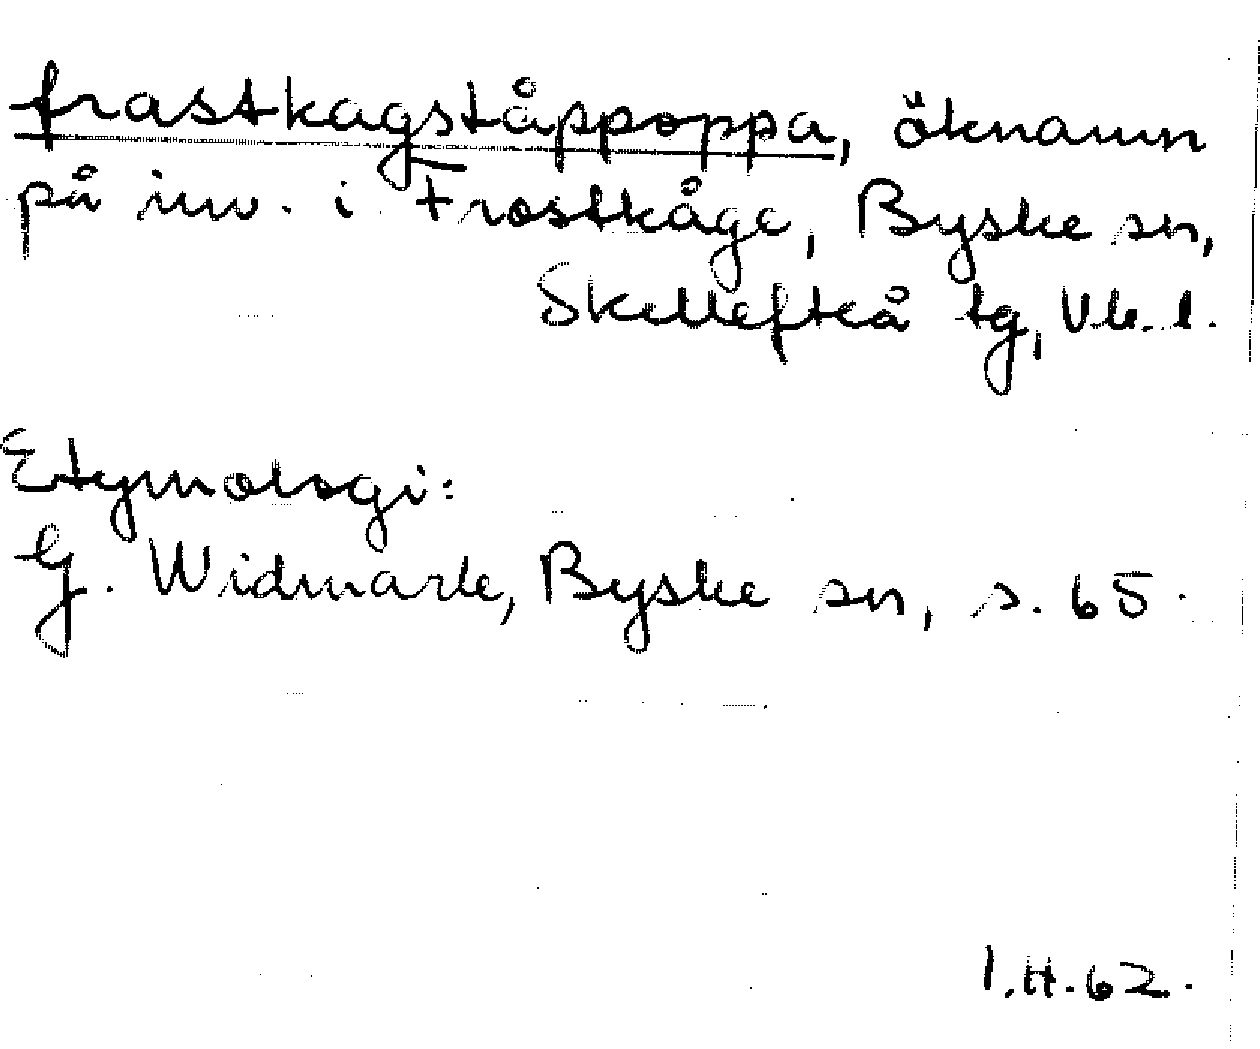 frastkagståppoppa, öknamn
på inv. i Frostkåge, Byske sn,
Skellefteå tg, Vb. l.
Etymologi:
G. Widmark, Byske sn, s. 65.
I.H.62.